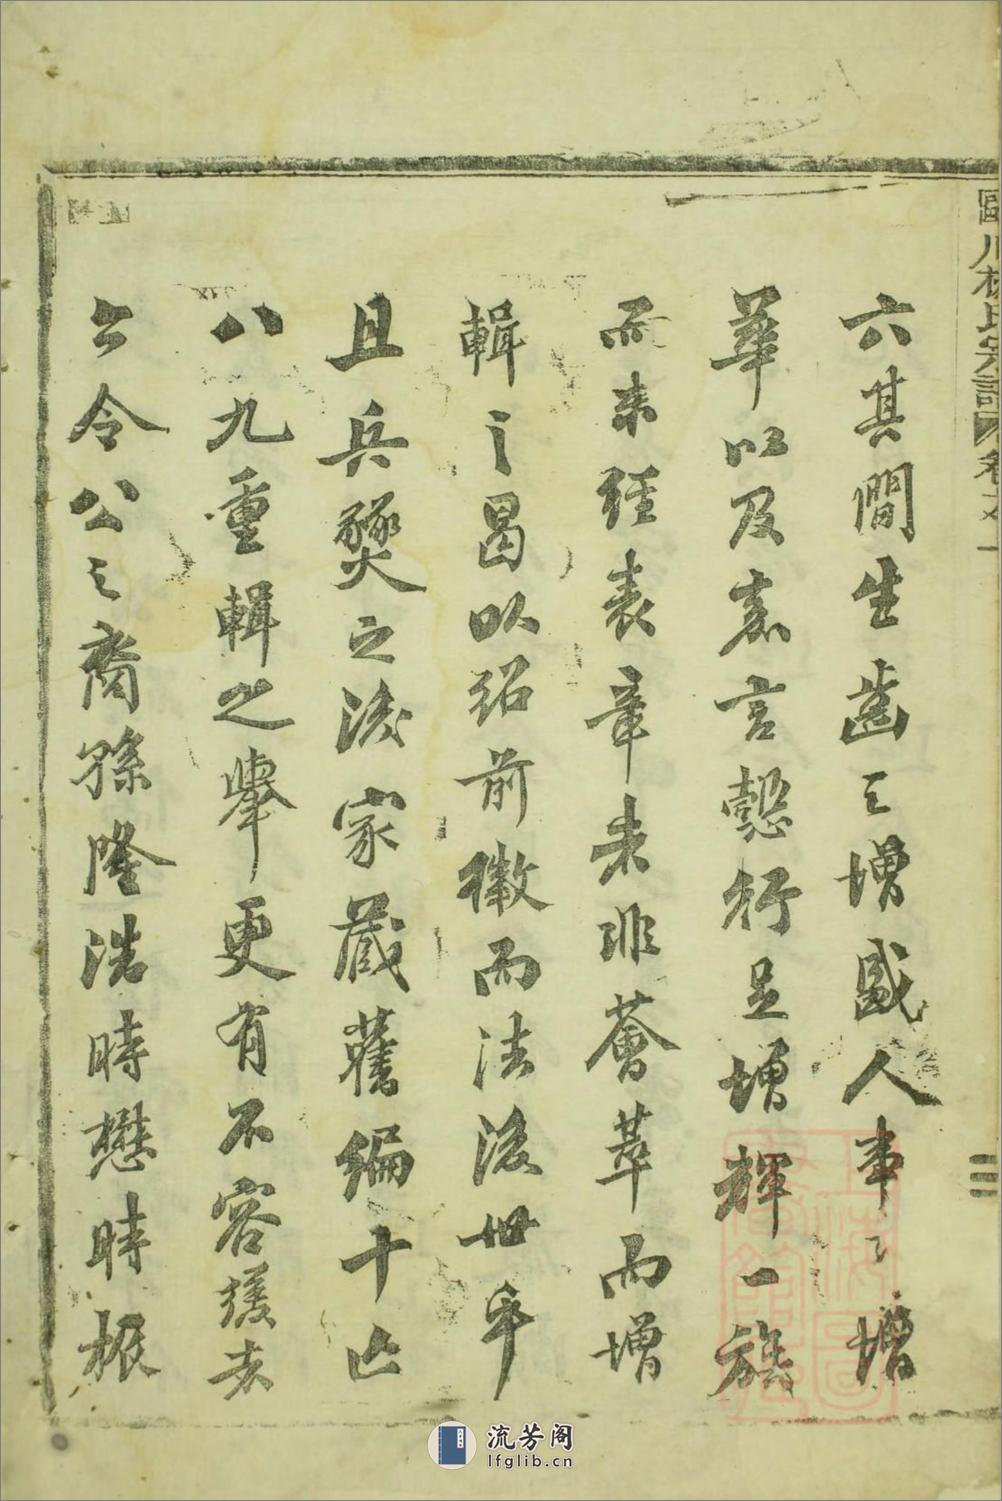 六其間生齒之增盛人事之增
華以及嘉言懿行足增輝一族
而未經表章者非薈萃而增
輯之曷以紹前徽而法後世乎
且兵燹之後家藏舊編十亡
八九重輯之舉更有不容緩者
令公之裔孫隆浩時懋時振
川林氏宗譜 卷之一
三
上海圖書館藏
流芳阁
lfglib.cn